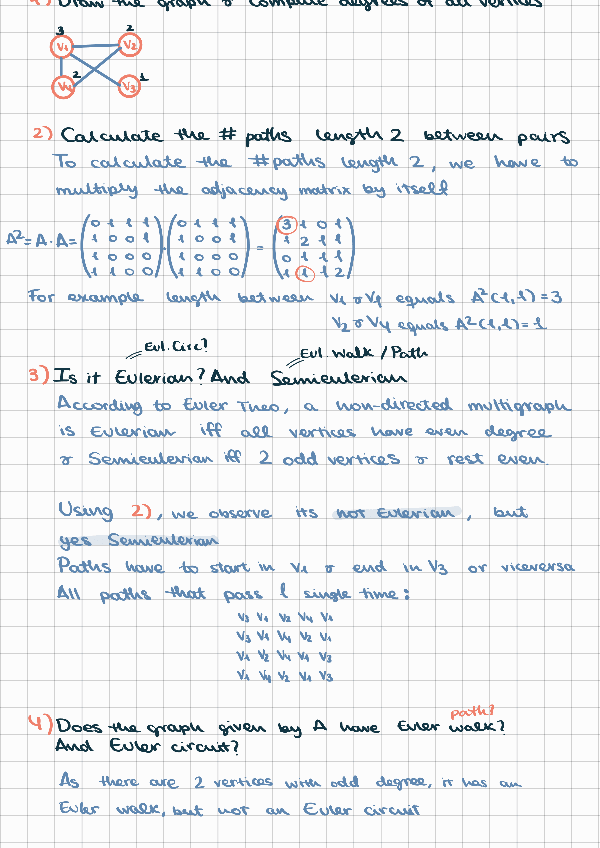 1) Draw the graph & compute degrees of all vertices
3 2
V1 V2
2 1
V4 V3
2) Calculate the # paths length 2 between pairs
To calculate the #paths length 2, we have to
multiply the adjacency matrix by itself
A²= A·A= (0 1 1 1 · (0 1 1 1 = (3 1 0 1
1 0 0 1 1 0 0 1 1 2 1 1
1 0 0 0 1 0 0 0 0 1 1 1
1 1 0 0) 1 1 0 0) 1 1 1 2)
For example length between V1 & V1 equals A²(1,1)=3
V2 & V4 equals A²(1,1)=1
Eul. Circ? Eul. Walk / Path
3) Is it Eulerian? And Semieulerian
According to Euler Theo, a non-directed multigraph
is Eulerian iff all vertices have even degree
& Semieulerian iff 2 odd vertices & rest even.
Using 2), we observe its not Eulerian, but
yes Semieulerian
Paths have to start in V1 & end in V3 or viceversa
All paths that pass 1 single time:
V3 V1 V2 V4 V1
V3 V1 V4 V2 V1
V1 V2 V4 V1 V3
V1 V4 V2 V1 V3
path?
4) Does the graph given by A have Euler walk?
And Euler circuit?
As there are 2 vertices with odd degree, it has an
Euler walk, but not an Euler circuit